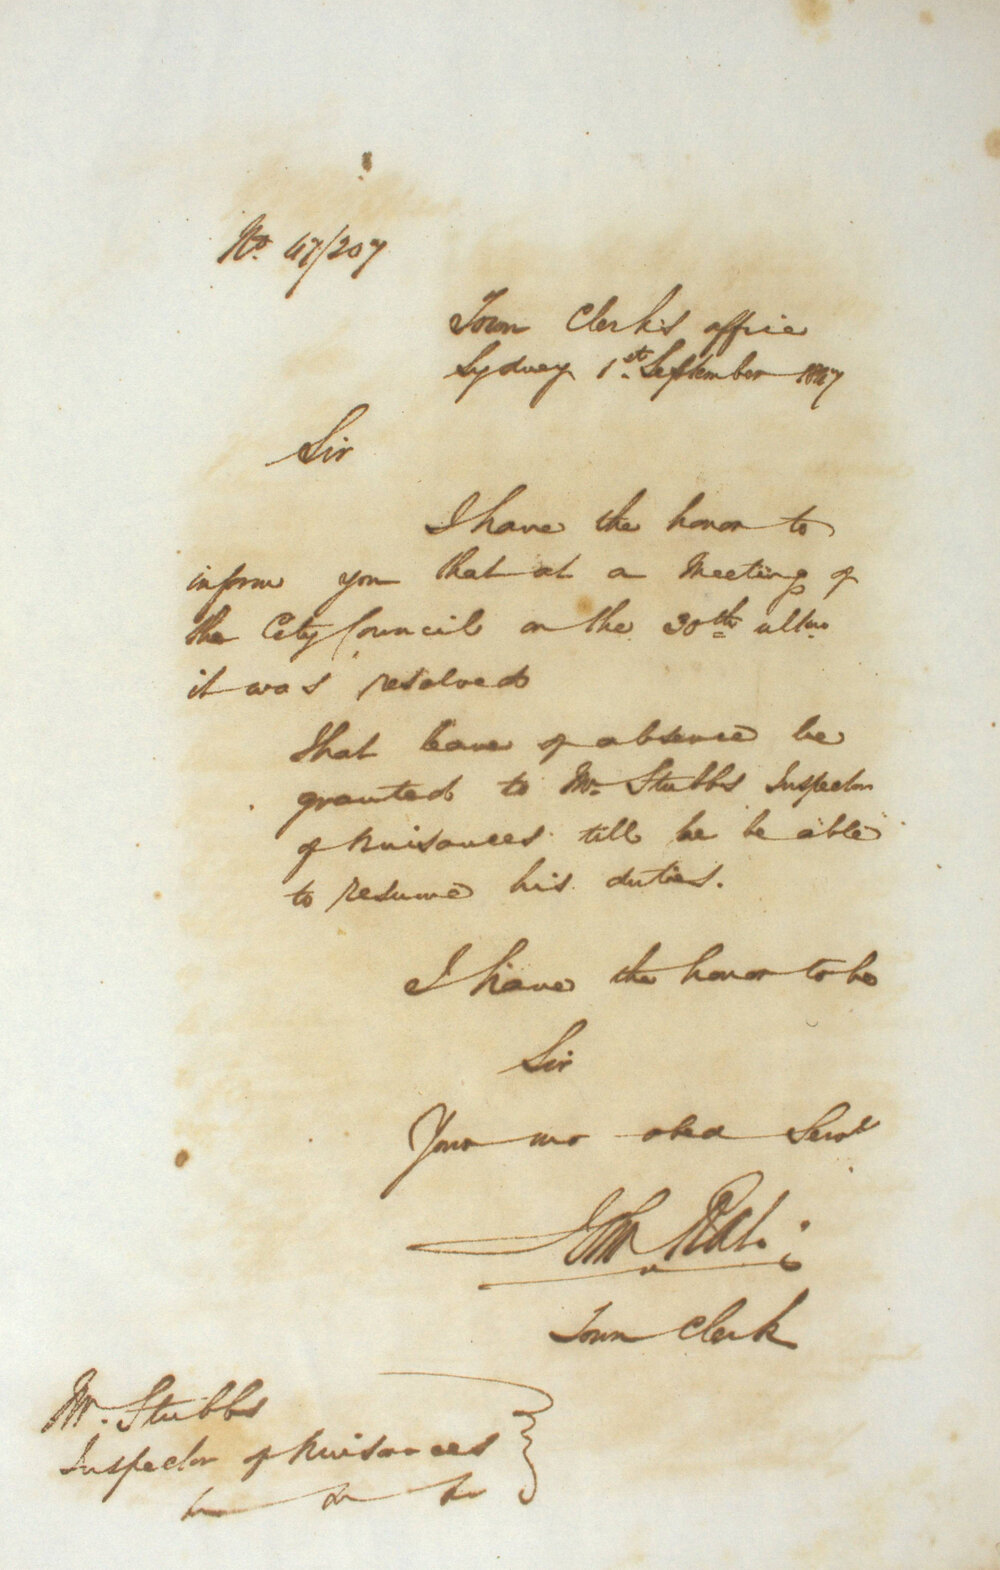 No. 47/207
Town Clerk's office
Sydney 1st September 1847
Sir
I have the honor to
inform you that at a Meeting of
the City Council on the 30th ultmo
it was resolved
That leave of absence be
granted to Mr. Stubbs Inspector
of Nuisances till he be able
to resume his duties.
I have the honor to be
Sir
Your mo obed Servt
John Rae
Town Clerk
Mr. Stubbs
Inspector of Nuisances